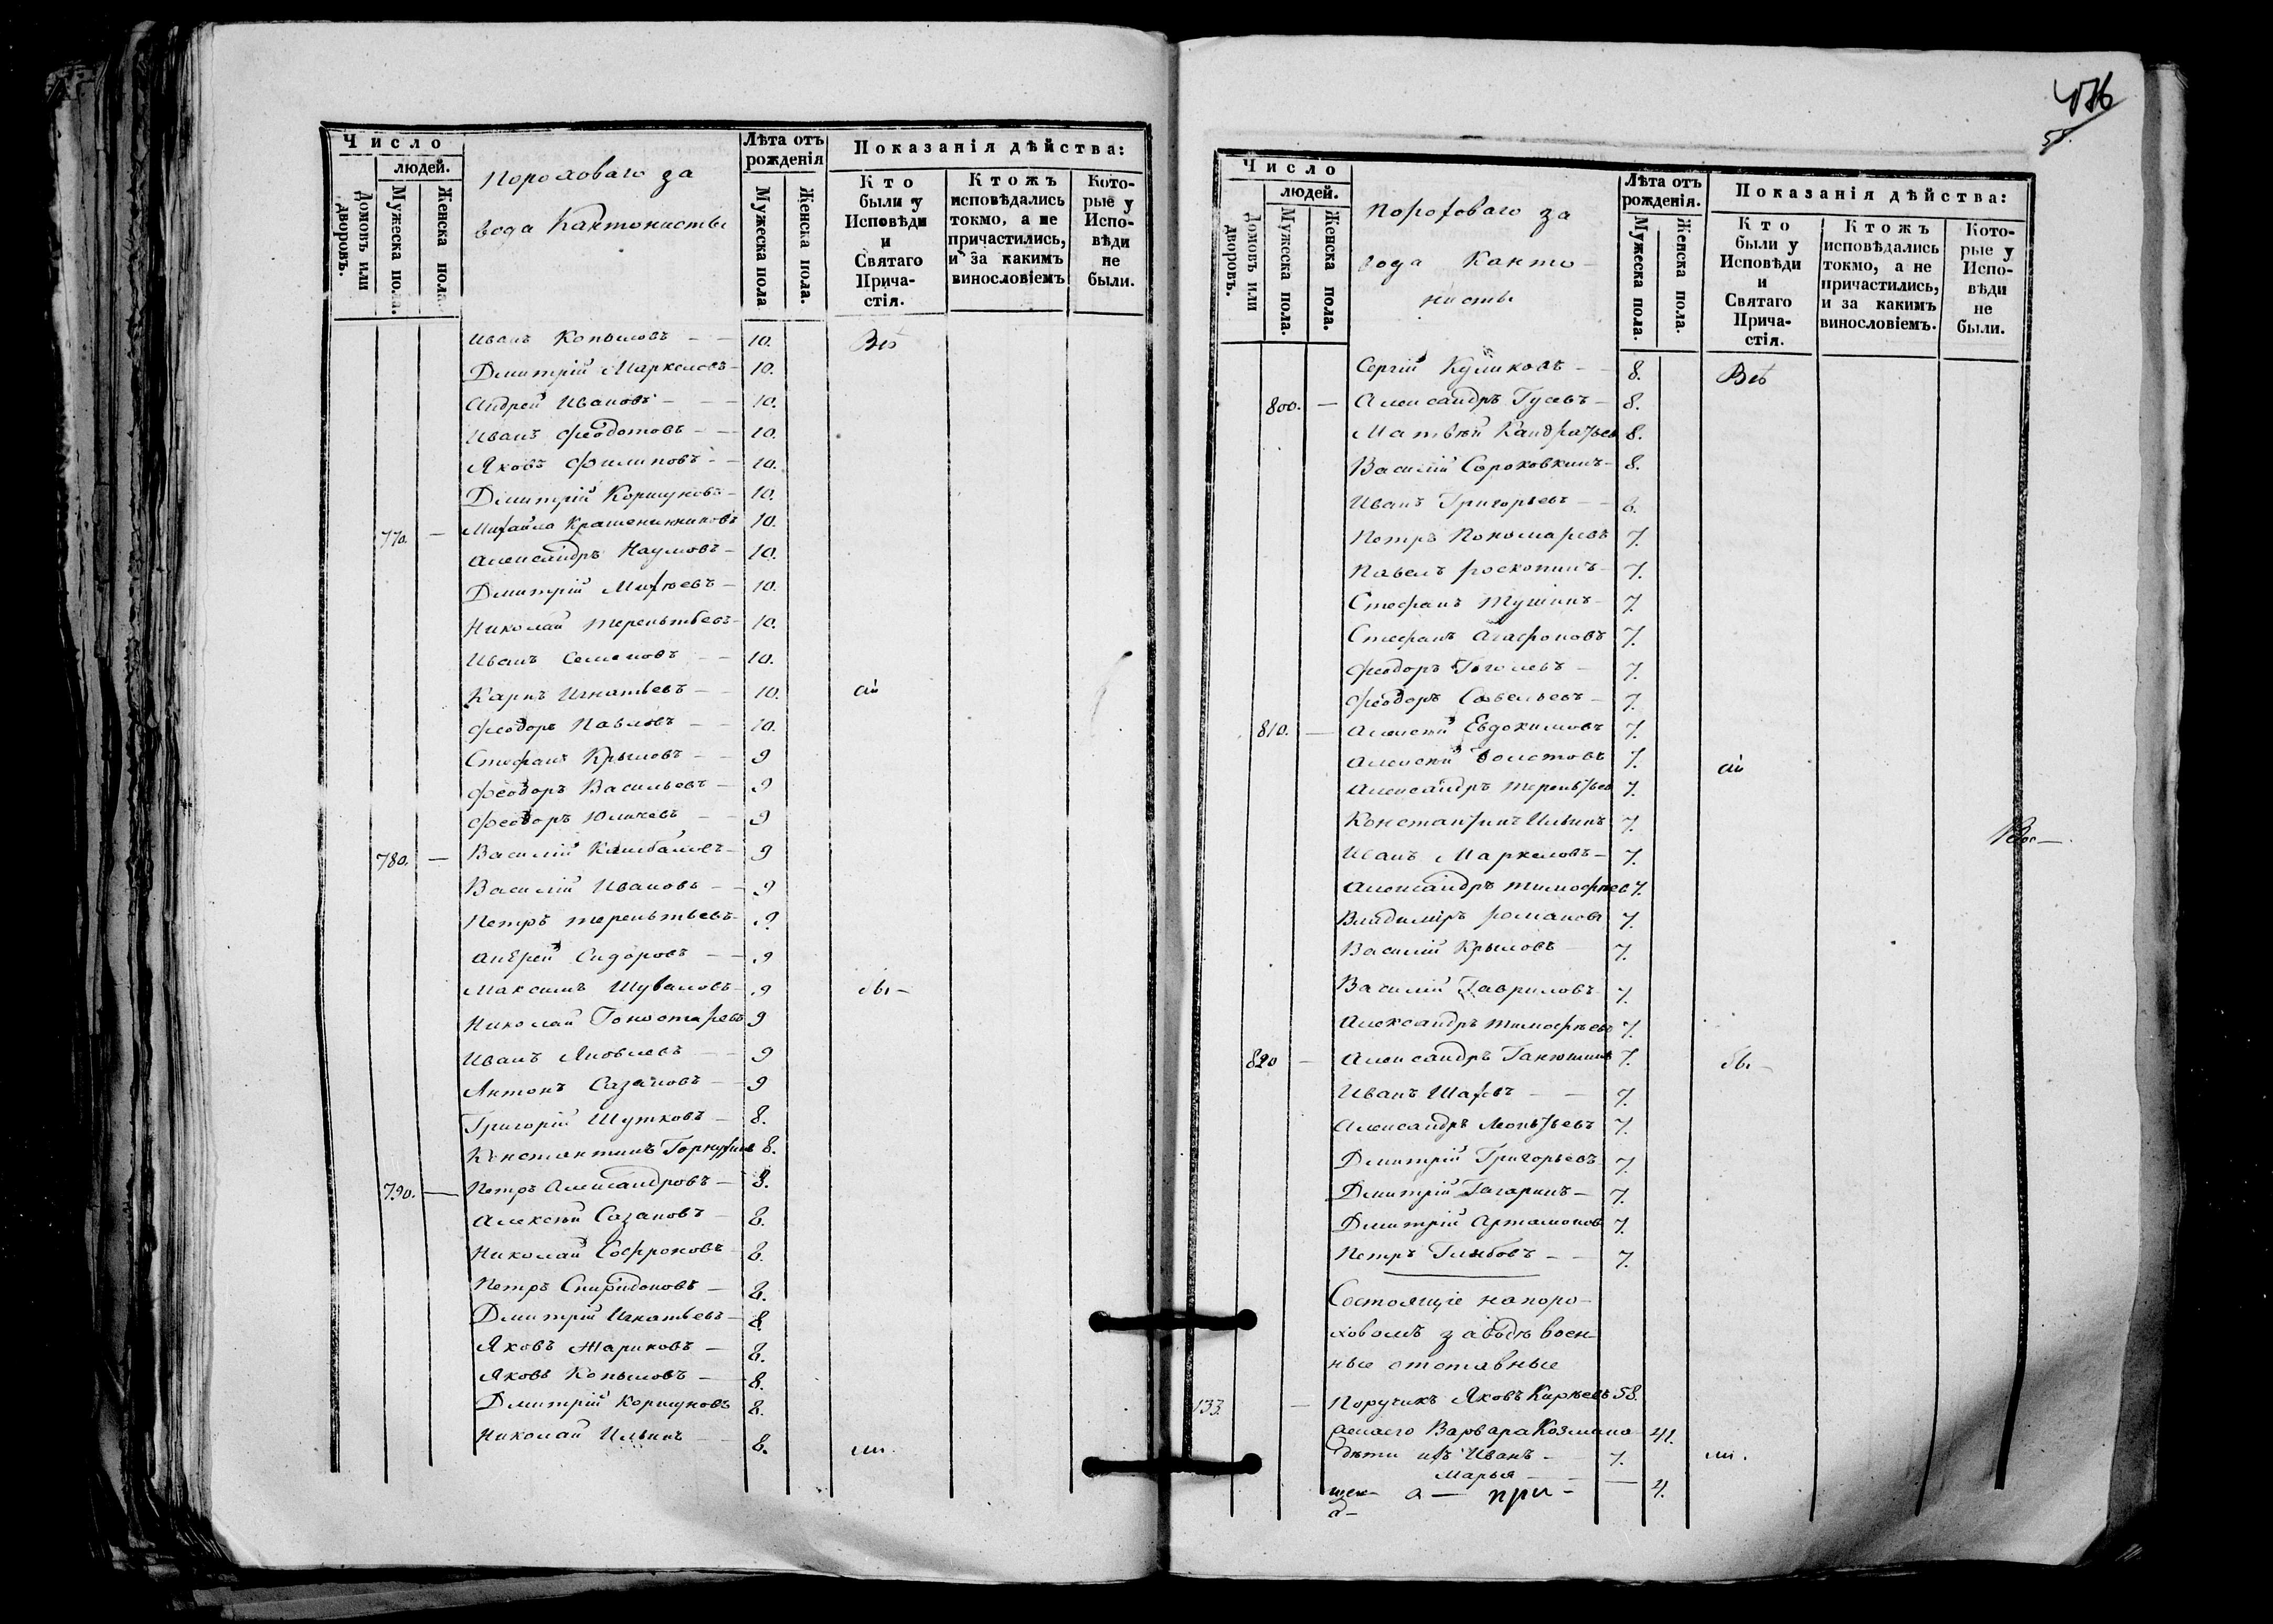 Число
людей.
Домовъ или дворовъ.
Мужеска пола.
Женска пола.
Пороховаго за
вода Кантонисты
Лѣта отъ рожденія
Мужеска пола
Женска пола.
Показанія дѣйства:
Кто были у Исповѣди и Святаго Прича-стія.
Ктожъ исповѣдались токмо, а не причастились, и за какимъ винословіемъ
Кото-рые у Испо-вѣди не были.
Иванъ Копыловъ - - 10. Всѣ
Дмитрій Маркеловъ - 10.
Андрей Ивановъ - - - 10.
Иванъ Феодотовъ - - 10.
Яковъ Филиповъ - - 10.
Дмитрій Коршуновъ - 10.
770. — Михайло Крашенинниковъ 10.
Александръ Наумовъ - 10.
Дмитрій Михѣевъ - 10.
Николай Терентьевъ - 10.
Иванъ Семеновъ - - 10.
Карпъ Игнатьевъ - - 10.
Феодоръ Павловъ - - 10.
Стефанъ Крыловъ - - 9
Феодоръ Васильевъ - 9
Феодоръ Юдичевъ - - 9
780. — Василій - 9
Василій Ивановъ - - 9
Петръ Терентьевъ - 9
Андрей Сидоровъ - - 9
Максимъ Шуваловъ - 9 бы -
Николай 9
Иванъ Яковлевъ - - 9
Антонъ Сазановъ - - 9
Григорій Шутковъ - 8.
Константинъ 8.
790. — Петръ Александровъ - 8.
Алексѣй Сазановъ - 8.
Николай Софроновъ 8.
Петръ Спиридоновъ - 8.
Дмитрій Игнатьевъ - 8
Яковъ Жариковъ - 8.
Яковъ Копыловъ - 8.
Дмитрій Коршуновъ 8.
Николай Ильинъ - - 8. ли.
Число
людей.
Домовъ или дворовъ.
Мужеска пола.
Женска пола.
Пороховаго за
вода Канто-
нисты
Лѣта отъ рожденія.
Мужеска пола.
Женска пола.
Показанія дѣйства:
Кто были у Исповѣди и Святаго Прича-стія.
Ктожъ исповѣдались токмо, а не причастились, и за какимъ винословіемъ.
Кото-рые у Испо-вѣди не были.
Сергій Куликовъ - 8. Всѣ
800. — Александръ Гусевъ - 8.
Матвѣй Кандратьев 8.
Василій Сороковкинъ - 8.
Иванъ Григорьевъ - - 8.
Петръ Пономаревъ 7.
Павелъ - 7.
Стефанъ Тушинъ - 7.
Стефанъ Агафоновъ 7.
Феодоръ Гоголевъ - 7.
Феодоръ Савельевъ - 7.
810. — Алексѣй Евдокимовъ 7.
Алексѣй 7.
Александръ Терентьев 7.
Константинъ Ильинъ 7.
Иванъ Маркеловъ - 7.
Александръ Тимофѣев 7.
Владиміръ Романовъ 7.
Василій Крыловъ 7.
Василій Гавриловъ 7.
Александръ Тимофѣевъ 7.
820 — Александръ 7. бы -
Иванъ - - 7.
Александръ Леонтьевъ 7.
Дмитрій Григорьевъ 7.
Дмитрій Гагаринъ - 7.
Дмитрій Артамонов 7.
Петръ - - 7.
Состоящіе напоро-
ховомъ заводѣ воен-
ные отставные
133. — Поручикъ Яковъ Кирѣевъ 58.
Жена его Варвара Козмина 41.
дѣти ихъ Иванъ - 7. ли.
Марья - - 4.
а — при -